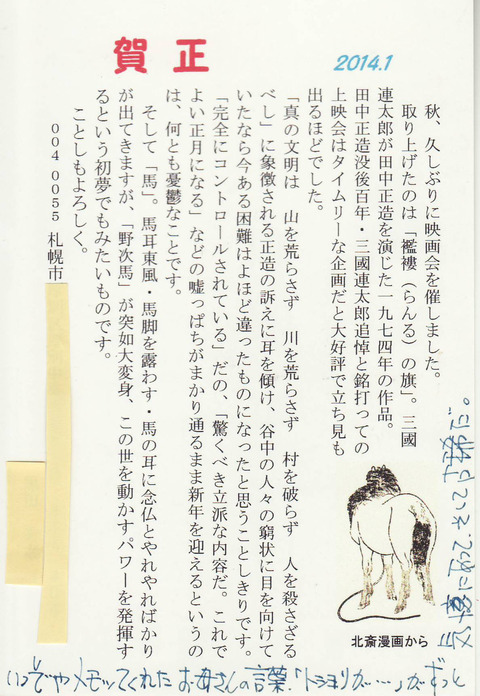 賀正
2014.1
秋、久しぶりに映画会を催しました。
取り上げたのは「襤褸（らんる）の旗」。三國
連太郎が田中正造を演じた一九七四年の作品。
田中正造没後百年・三國連太郎追悼と銘打っての
上映会はタイムリーな企画だと大好評で立ち見も
出るほどでした。
「真の文明は　山を荒らさず　川を荒らさず　村を破らず　人を殺さざる
べし」に象徴される正造の訴えに耳を傾け、谷中の人々の窮状に目を向けて
いたなら今ある困難はよほど違ったものになったと思うことしきりです。
「完全にコントロールされている」だの、「驚くべき立派な内容だ。これで
よい正月になる」などの嘘っぱちがまかり通るまま新年を迎えるというの
は、何とも憂鬱なことです。
そして「馬」。馬耳東風・馬脚を露わす・馬の耳に念仏とやれやればかり
が出てきますが、「野次馬」が突如大変身、この世を動かすパワーを発揮す
るという初夢でもみたいものです。
ことしもよろしく。
００４ ００５５ 札幌市
北斎漫画から
いつぞやメモってくれたお母さんの言葉「トショリガ…」がずっと
にあって、そして
だ。